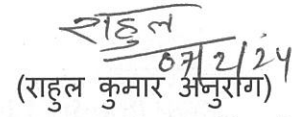 राहुल
07/2/24
(राहुल कुमार अनुराग)